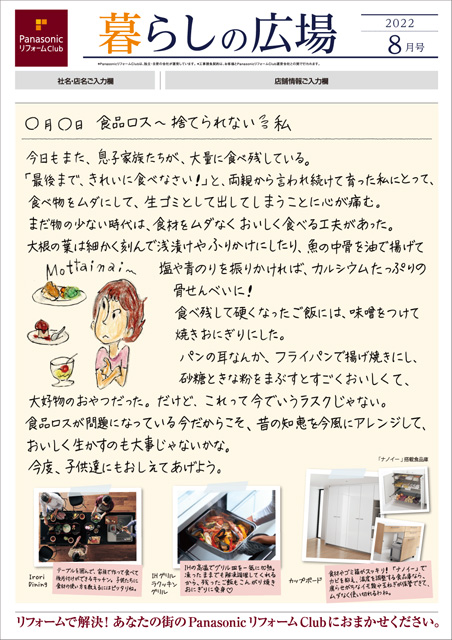 Panasonic
リフォームClub
暮らしの広場
2022
8月号
社名・店名ご入力欄
店舗情報ご入力欄
〇月〇日 食品ロス～捨てられない私
今日もまた、息子家族たちが、大量に食べ残している。
「最後まで、きれいに食べなさい!」と、両親から言われ続けて育った私にとって、
食べ物をムダにして、生ゴミとして出してしまうことに心が痛む。
まだ物の少ない時代は、食材をムダなくおいしく食べる工夫があった。
大根の葉は細かく刻んで浅漬けやふりかけにしたり、魚の中骨を油で揚げて
Mottainai～
塩や青のりを振りかければ、カルシウムたっぷりの
骨せんべいに!
食べ残して硬くなったご飯には、味噌をつけて
焼きおにぎりにした。
パンの耳なんか、フライパンで揚げ焼きにし、
砂糖ときな粉をまぶすとすごくおいしくて、
大好物のおやつだった。だけど、これって今でいうラスクじゃない。
食品ロスが問題になっている今だからこそ、昔の知恵を今風にアレンジして、
おいしく生かすのも大事じゃないかな。
今度、子供達にもおしえてあげよう。
「ナノイー」搭載食品庫
Irori
Dining
テーブルを囲んで、家族で作って食べて
後片付けができるキッチン。子供たちに
食材の使い方を教えるにはピッタリね。
IHグリル
ラクッキン
グリル
IHの高温でグリル皿を一気に加熱。
凍ったままでも解凍調理してくれる
から、残ったご飯もこんがり焼き
おにぎりに変身♡
カップボード
食材やゴミ箱がスッキリ!「ナノイー」で
カビを抑え、湿度を調整する食品庫なら、
ムダなく使い切れるわね。
リフォームで解決! あなたの街のPanasonic リフォーム Clubにおまかせください。